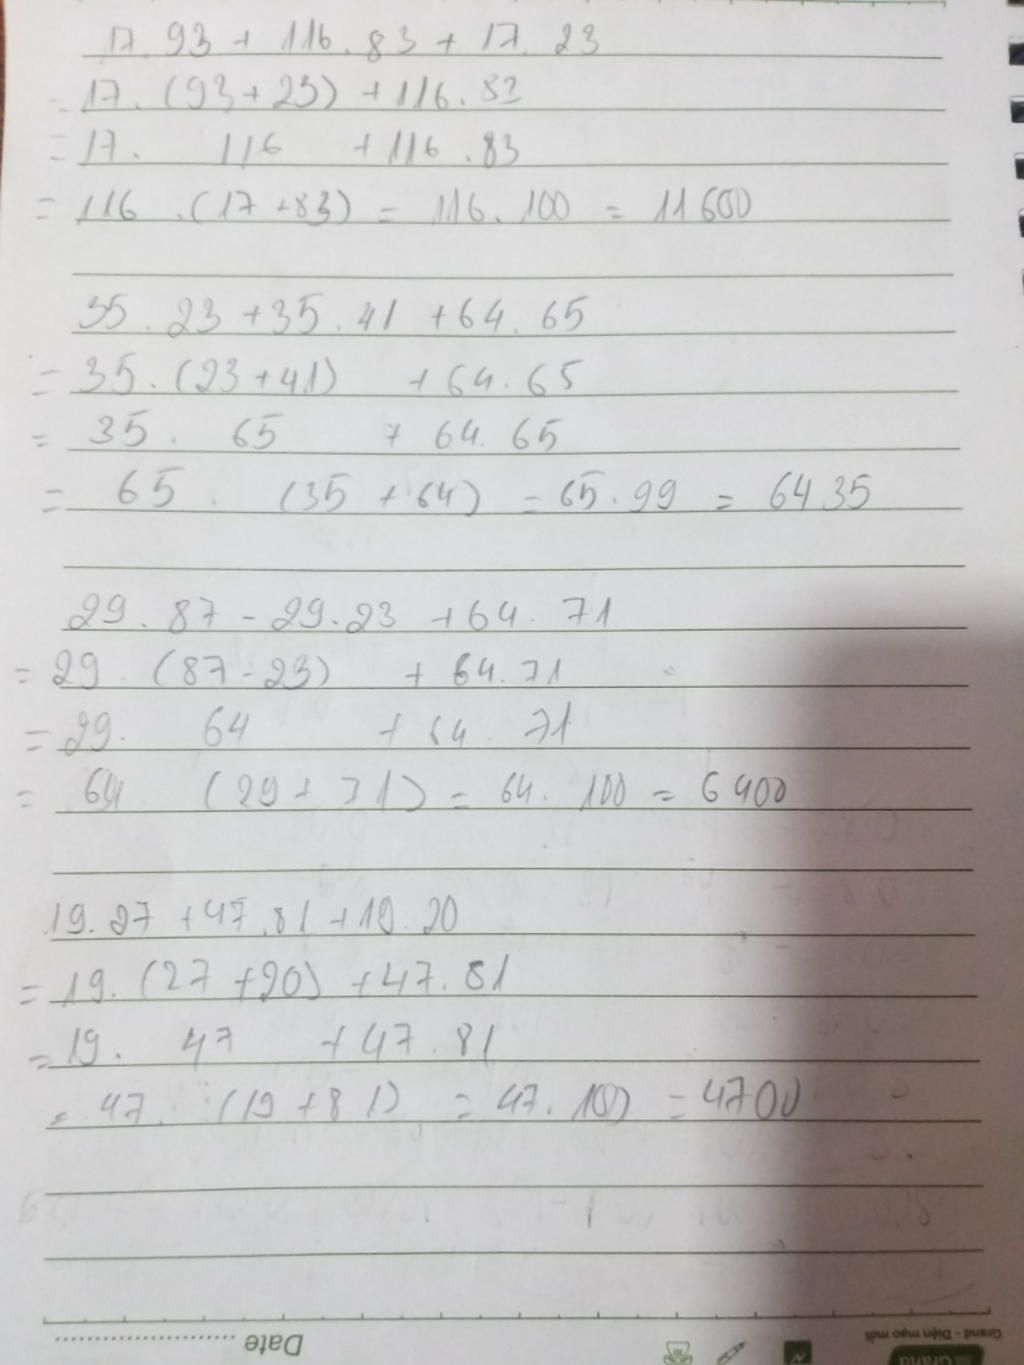 17.93 + 116.83 + 17.23
= 17.(93+23) + 116.83
= 17. 116 + 116.83
= 116.(17+83) = 116.100 = 11600
35.23 + 35.41 + 64.65
= 35.(23+41) + 64.65
= 35. 65 + 64.65
= 65. (35 + 64) = 65.99 = 6435
29.87 - 29.23 + 64.71
= 29.(87-23) + 64.71
= 29. 64 + 64.71
= 64 (29+71) = 64.100 = 6400
19.27 + 47.81 + 19.20
= 19.(27+20) + 47.81
= 19. 47 + 47.81
= 47. (19+81) = 47.100 = 4700
Date
Grand - Diện mạo mới
Grand